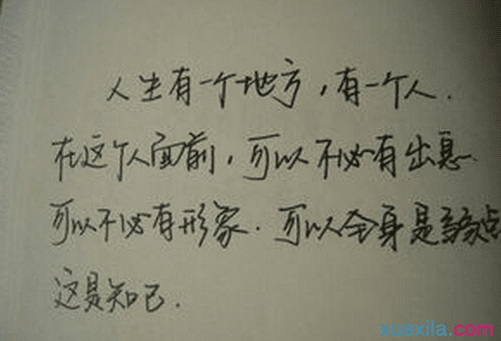 人生有一个地方，有一个人．
在这个人面前，可以不必有出息
可以不必有形象．可以全身是缺点
这是知己．
xuexila.com